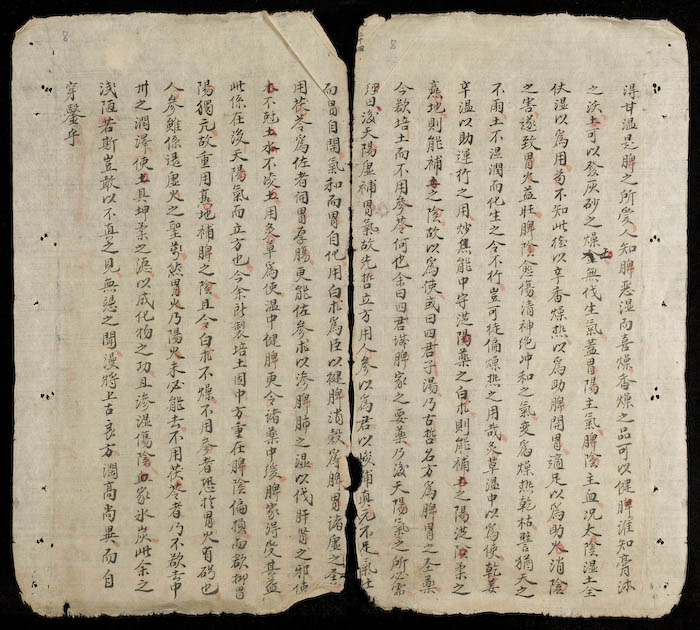 得甘温是脾之所爱人知脾恶湿而喜燥香燥之品可以健脾誰知膏沐
之沃土可以發灰砂之燥土無伐生氣蓋胃陽主氣脾陰主血况太陰湿土全
伏湿以為用苟不知此徒以辛香燥热以為助脾開胃適足以為助火消陰
之害遂致胃火益旺脾陰愈傷清神绝冲和之氣变為燥热乾枯譬猶天之
不雨土不湿潤而化生之令不行豈可徒偏燥热之用哉炙草温中以為使乾姜
辛温以助運行之用炒焦能中守從陽藥之白朮則能補土之陽從陰柔之
熟地則能補土之陰故以為使或曰四君子湯乃古哲名方為脾胃之圣藥
今欲培土而不用参苓何也余曰四君誠脾家之要藥乃後天陽氣之所必需
因後天陽虚補胃氣故先哲立方用人参以為君以峻補真元不足氣壮
而胃自開氣和而胃自他用白朮為臣以健脾消穀為脾胃诸虚之圣
用茯苓為佐者祠胃厚腸更能佐参朮以渗脾肺之湿以伐肝腎之邪使
木不尅土水不凌土用炙草為使温中健脾更令诸藥中缓脾家得受其益
此係在後天陽氣而立方也今余所製培土固中方重在脾陰偏損而欲抑胃
陽獨亢故重用熟地補脾之陰且令白朮不燥不用参者恐於胃火有碍也
人参雖係退虚火之聖藥然胃火乃陽火未必能去不用茯苓者乃不欲去中
州之潤澤使土具坤柔之源以成化物之功且渗湿傷陰血家氷炭此余之
浅陋若斯豈敢以不真之見無憑之聞漫將上古良方濶高尚異而自
穿鑿乎
8
8